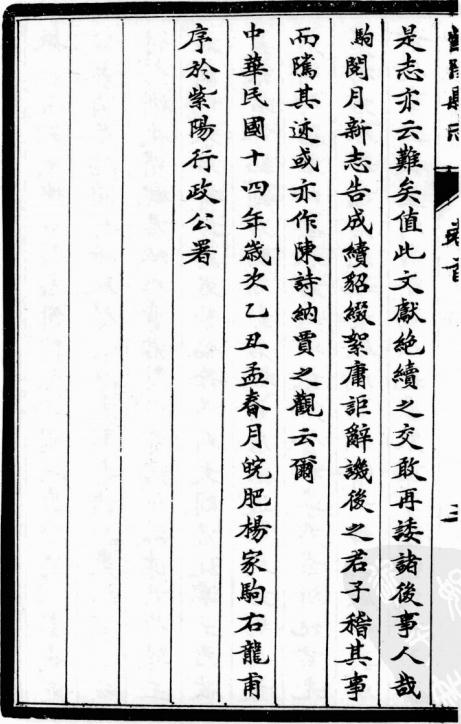 紫陽縣志
卷首
是志亦云難矣值此文獻絶續之交敢再諉諸後事人哉
駒閱月新志告成續貂綴絮庸詎辭譏後之君子稽其事
而隲其迹或亦作陳詩納賈之觀云爾
中華民國十四年歲次乙丑孟春月皖肥楊家駒右龍甫
序於紫陽行政公署